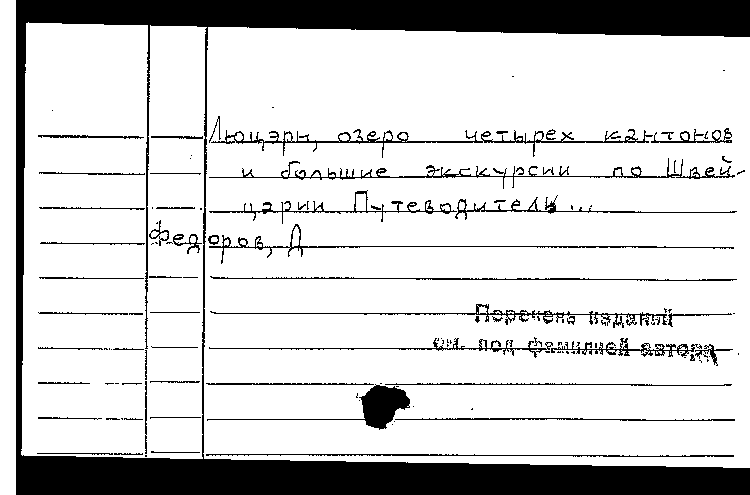 Люцэрн, озеро четырех кантонов
и большие экскурсии по Швей-
царии. Путеводитель...
Федоров, Д
Перечень изданий
см. под фамилией автора